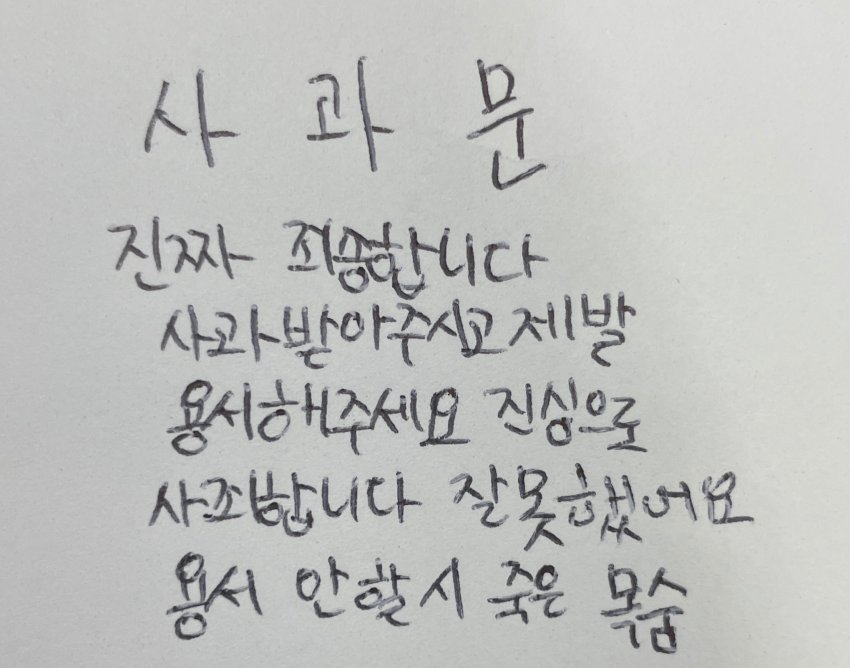 사 과 문
진짜 죄송합니다
사과받아주시고 제발
용서해주세요 진심으로
사죄합니다 잘못했어요
용서 안할시 죽은 목숨